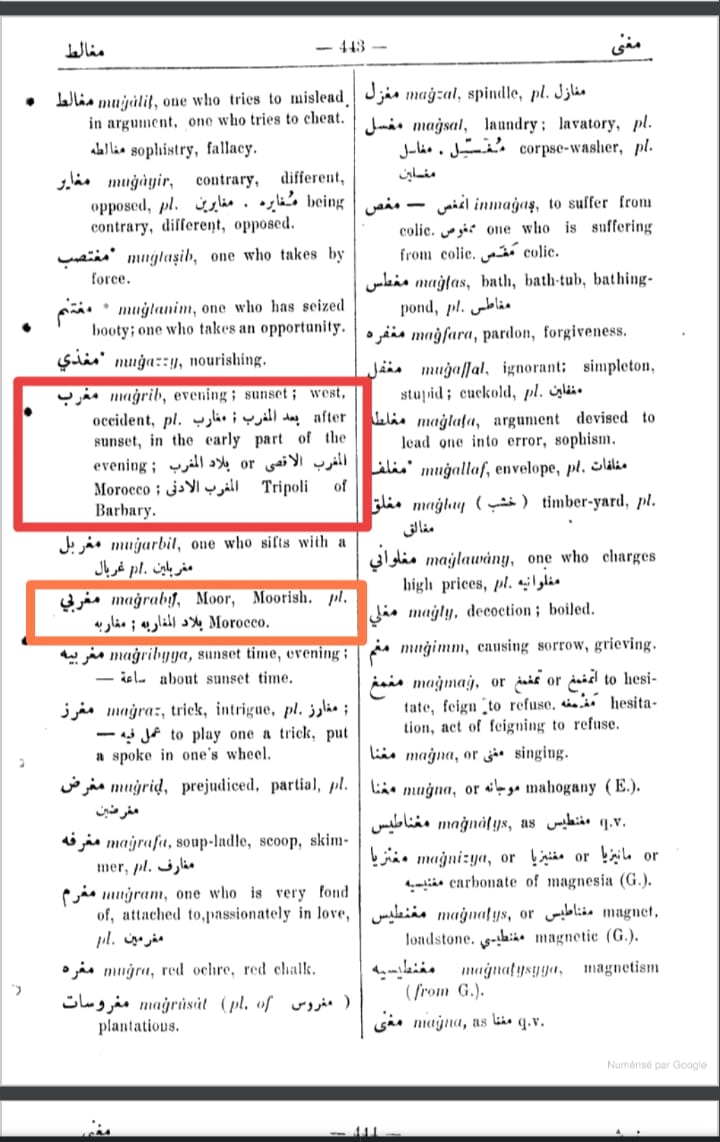 مغالط — 443 — مغنى
مغالط muġâliṭ, one who tries to mislead
in argument, one who tries to cheat.
مغالطه sophistry, fallacy.
مغاير muġâyir, contrary, different,
opposed, pl. مغايرين . مُغايره being
contrary, different, opposed.
مغتصب* muġtaṣib, one who takes by
force.
مغتنم * muġtanim, one who has seized
booty; one who takes an opportunity.
مغذي* muġazzy, nourishing.
مغرب maġrib, evening; sunset; west,
occident, pl. مغارب ; بعد المغرب after
sunset, in the early part of the
evening; بلاد المغرب or المغرب الاقصى
Morocco ; المغرب الادنى Tripoli of
Barbary.
مغربل muġarbil, one who sifts with a
غربال pl. مغربلين
مغربي maġraby, Moor, Moorish. pl.
مغاربه ; بلاد المغاربه Morocco.
مغربيه maġribyya, sunset time, evening;
— ساعة about sunset time.
مغرز maġraz, trick, intrigue, pl. مغارز ;
— عمل فيه to play one a trick, put
a spoke in one's wheel.
مغرض muġriḍ, prejudiced, partial, pl.
مغرضين
مغرفه maġrafa, soup-ladle, scoop, skim-
mer, pl. مغارف
مغرم muġram, one who is very fond
of, attached to, passionately in love,
pl. مغرمين
مغره muġra, red ochre, red chalk.
مغروسات maġrûsât (pl. of مغروس )
plantations.
مغزل maġzal, spindle, pl. مغازل
مغسل maġsal, laundry; lavatory, pl.
مغاسل . مُغَسِّل corpse-washer, pl.
مغسلين
مغص — انمغص inmaġaṣ, to suffer from
colic. ممغوص one who is suffering
from colic. مَغَص colic.
مغطس maġṭas, bath, bath-tub, bathing-
pond, pl. مغاطس
مغفره maġfara, pardon, forgiveness.
مغفل muġaffal, ignorant; simpleton,
stupid; cuckold, pl. مغفلين
مغلطه maġlaṭa, argument devised to
lead one into error, sophism.
مغلف* muġallaf, envelope, pl. مغلفات
مغلق maġlaq ( خشب ) timber-yard, pl.
مغالق
مغلواني maġlawâny, one who charges
high prices, pl. مغلوانيه
مغلي maġly, decoction; boiled.
مغم muġimm, causing sorrow, grieving.
مغمغ maġmaġ, or اتمغمغ or تمغمغ to hesi-
tate, feign to refuse. مَغْمَغه hesita-
tion, act of feigning to refuse.
مغنا maġna, or مغنى singing.
مغنا muġna, or موجانه mahogany (E.).
مغناطيس maġnâṭys, as مغنطيس q.v.
مغنزيا maġnizya, or مغنيزيا or مانيزيا or
مغنيسيه carbonate of magnesia (G.).
مغنطيس maġnaṭys, or مغناطيس magnet,
loadstone. مغنطيسي magnetic (G.).
مغنطيسيه maġnaṭysyya, magnetism
(from G.).
مغنى maġna, as مغنا q.v.
Numérisé par Google
مغنى — 444 —